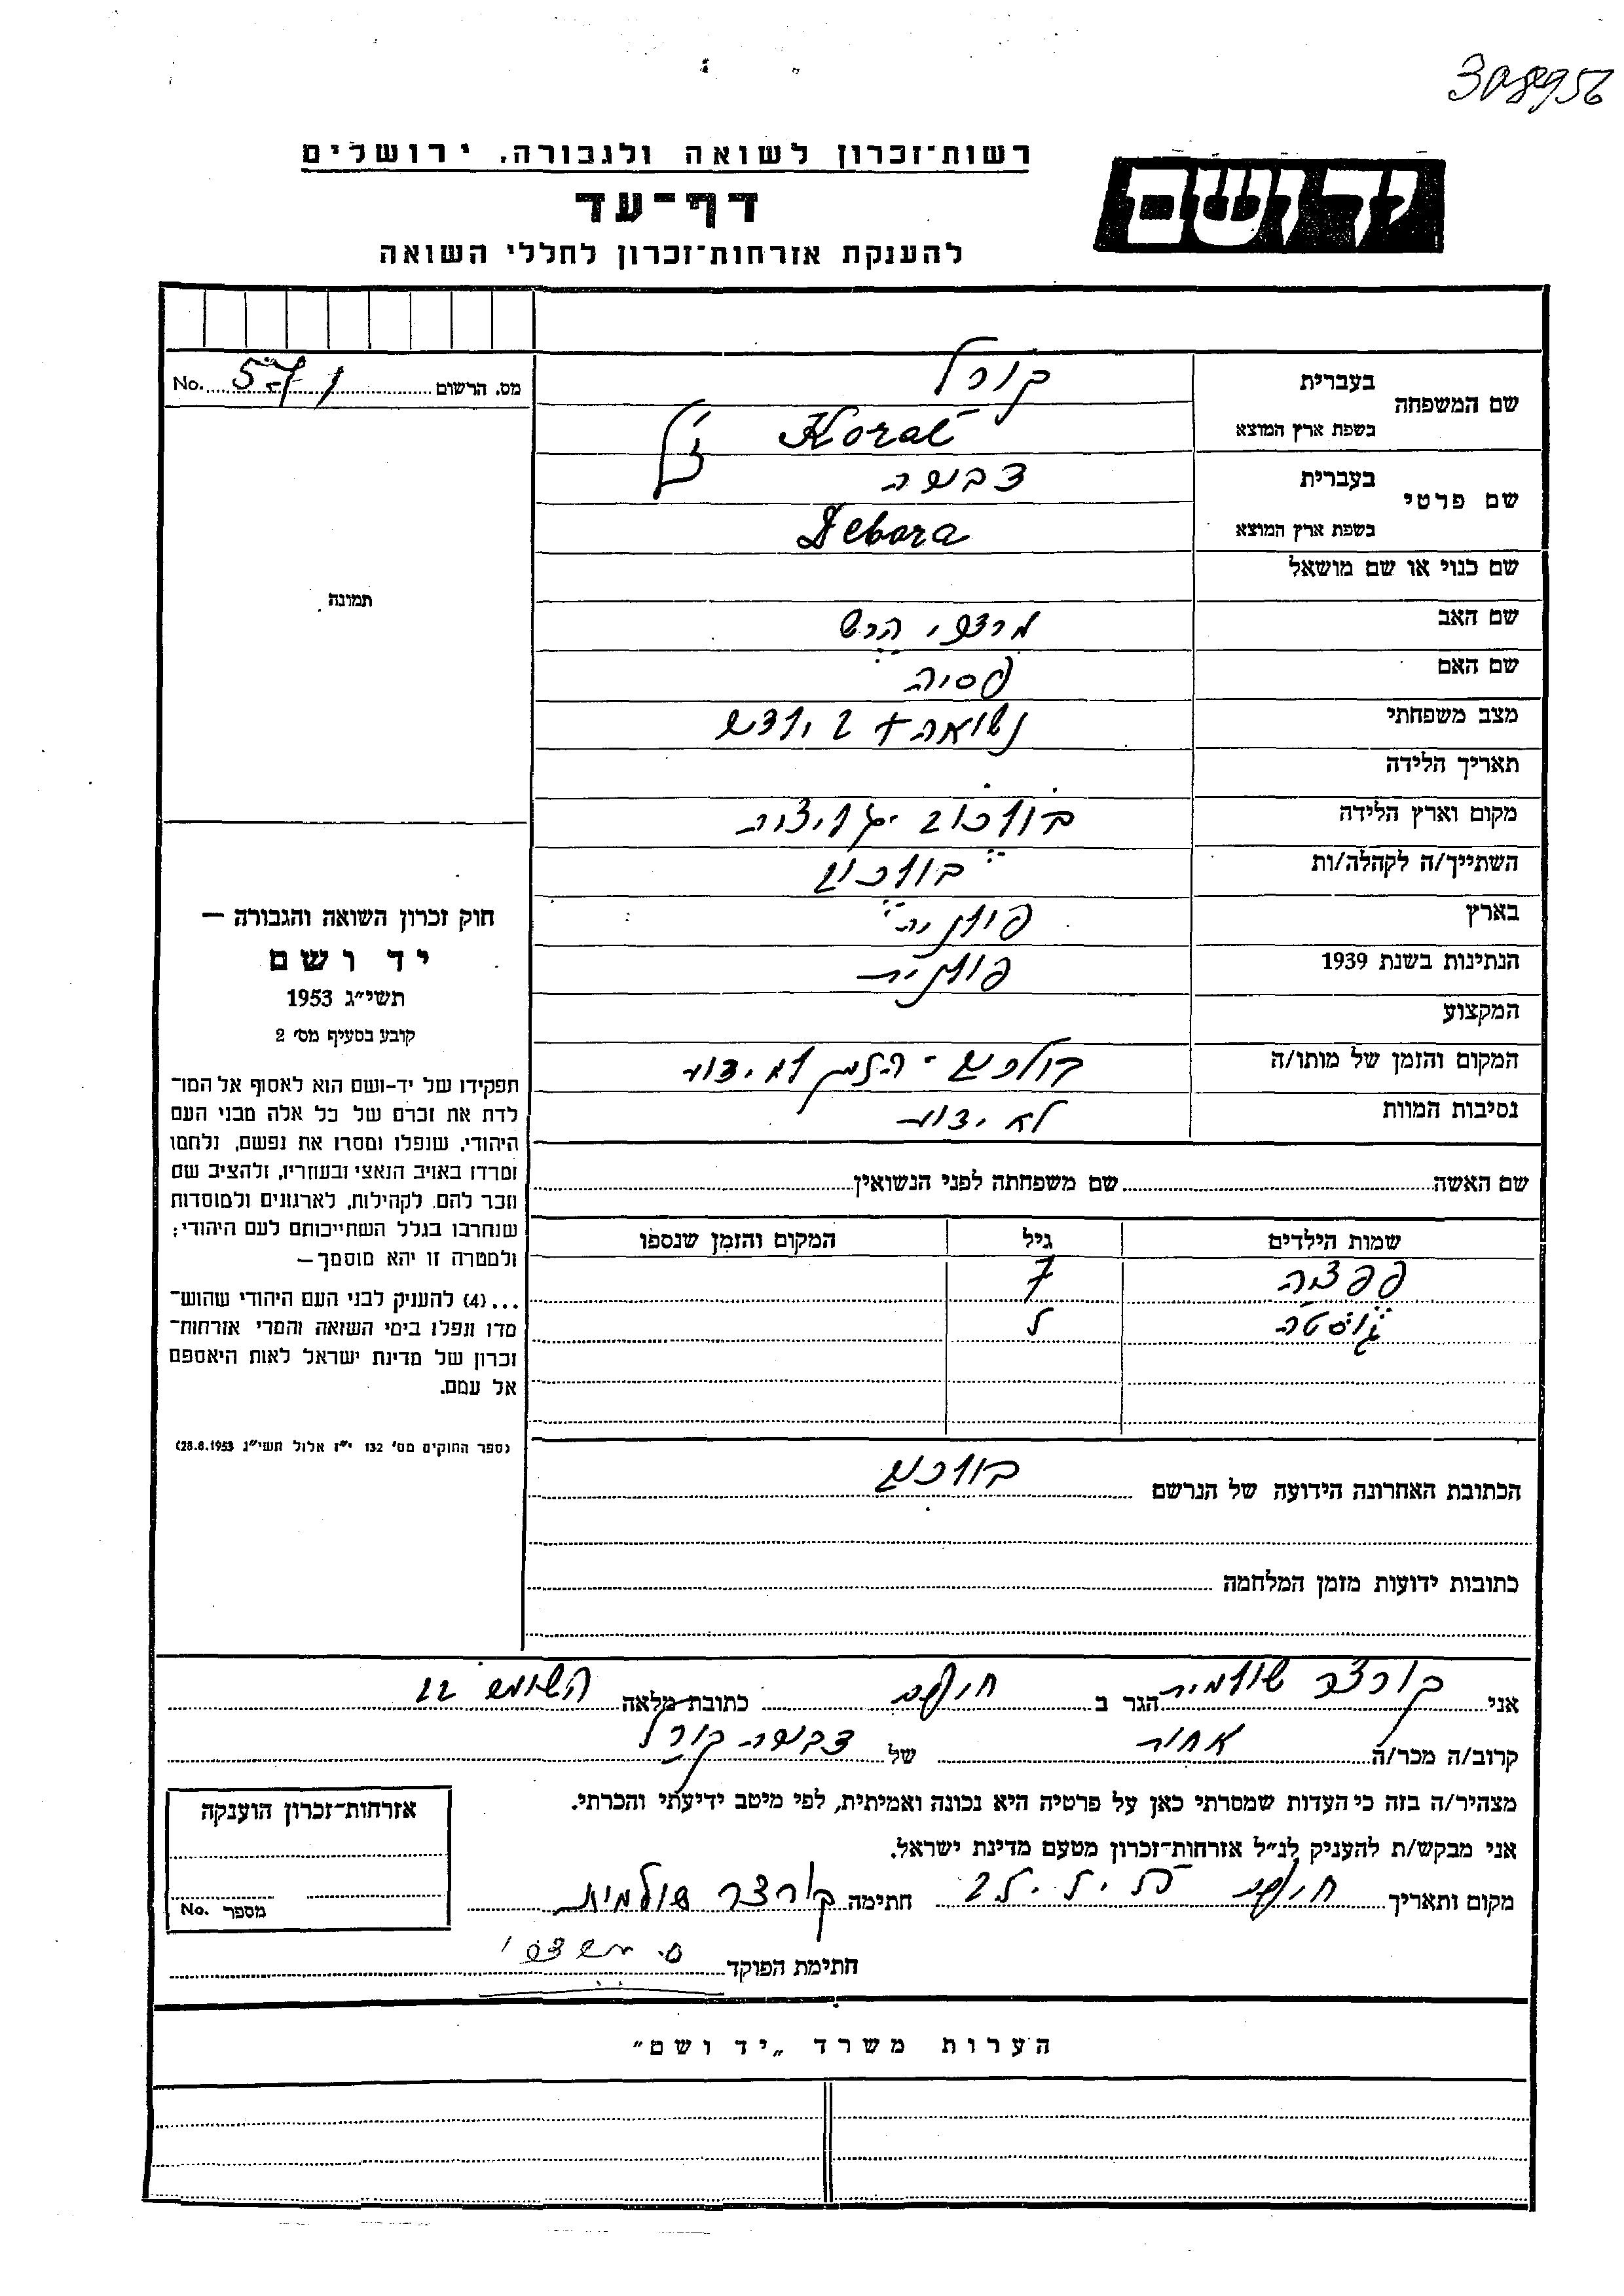 308956
רשות־זכרון לשואה ולגבורה, ירושלים
יד ושם
דף־עד
להענקת אזרחות־זכרון לחללי השואה
מס. הרשום No. 571
שם המשפחה בעברית קורל
בשפת ארץ המוצא Koral
ז"ל
שם פרטי בעברית דבורה
בשפת ארץ המוצא Debora
שם כנוי או שם מושאל
תמונה
שם האב מרדכי הרש
שם האם פסיה
מצב משפחתי נשואה + 2 ילדים
תאריך הלידה
מקום וארץ הלידה
השתייך/ה לקהלה/ות
בארץ פולניה
הנתינות בשנת 1939 פולנית
המקצוע
המקום והזמן של מותו/ה הזמן לא ידוע
נסיבות המוות לא ידוע
שם האשה שם משפחתה לפני הנשואין
שמות הילדים גיל המקום והזמן שנספו
7
גוסטה
הכתובת האחרונה הידועה של הנרשם
כתובות ידועות מזמן המלחמה
חוק זכרון השואה והגבורה —
יד ושם
תשי״ג 1953
קובע בסעיף מס׳ 2
תפקידו של יד-ושם הוא לאסוף אל המו־
לדת את זכרם של כל אלה מבני העם
היהודי, שנפלו ומסרו את נפשם, נלחמו
ומרדו באויב הנאצי ובעוזריו, ולהציב שם
וזכר להם, לקהילות, לארגונים ולמוסדות
שנחרבו בגלל השתייכותם לעם היהודי;
ולמטרה זו יהא מוסמך —
...(4) להעניק לבני העם היהודי שהוש־
מדו ונפלו בימי השואה והמרי אזרחות־
זכרון של מדינת ישראל לאות היאספם
אל עמם.
(ספר החוקים מס׳ 132 י״ז אלול תשי״ג 28.8.1953)
אני שולמית הגר ב חיפה כתובת מלאה 22
קרוב/ה מכר/ה אחות של דבורה קורל
מצהיר/ה בזה כי העדות שמסרתי כאן על פרטיה היא נכונה ואמיתית, לפי מיטב ידיעתי והכרתי.
אני מבקש/ת להעניק לנ״ל אזרחות־זכרון מטעם מדינת ישראל.
מקום ותאריך חיפה חתימה שולמית
חתימת הפוקד
אזרחות־זכרון הוענקה
מספר No.
הערות משרד „יד ושם״